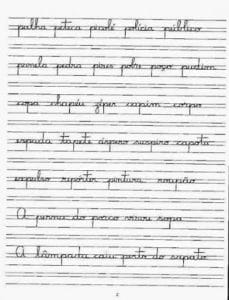 palha peteca picolé polícia público
panela pedra pires pobre poço pudim
copa chapéu zíper capim corpo
espada tapete áspero suspiro capota
expulso repórter pintura roupão
A perna do porco virou sopa
A lâmpada caiu perto do sapato